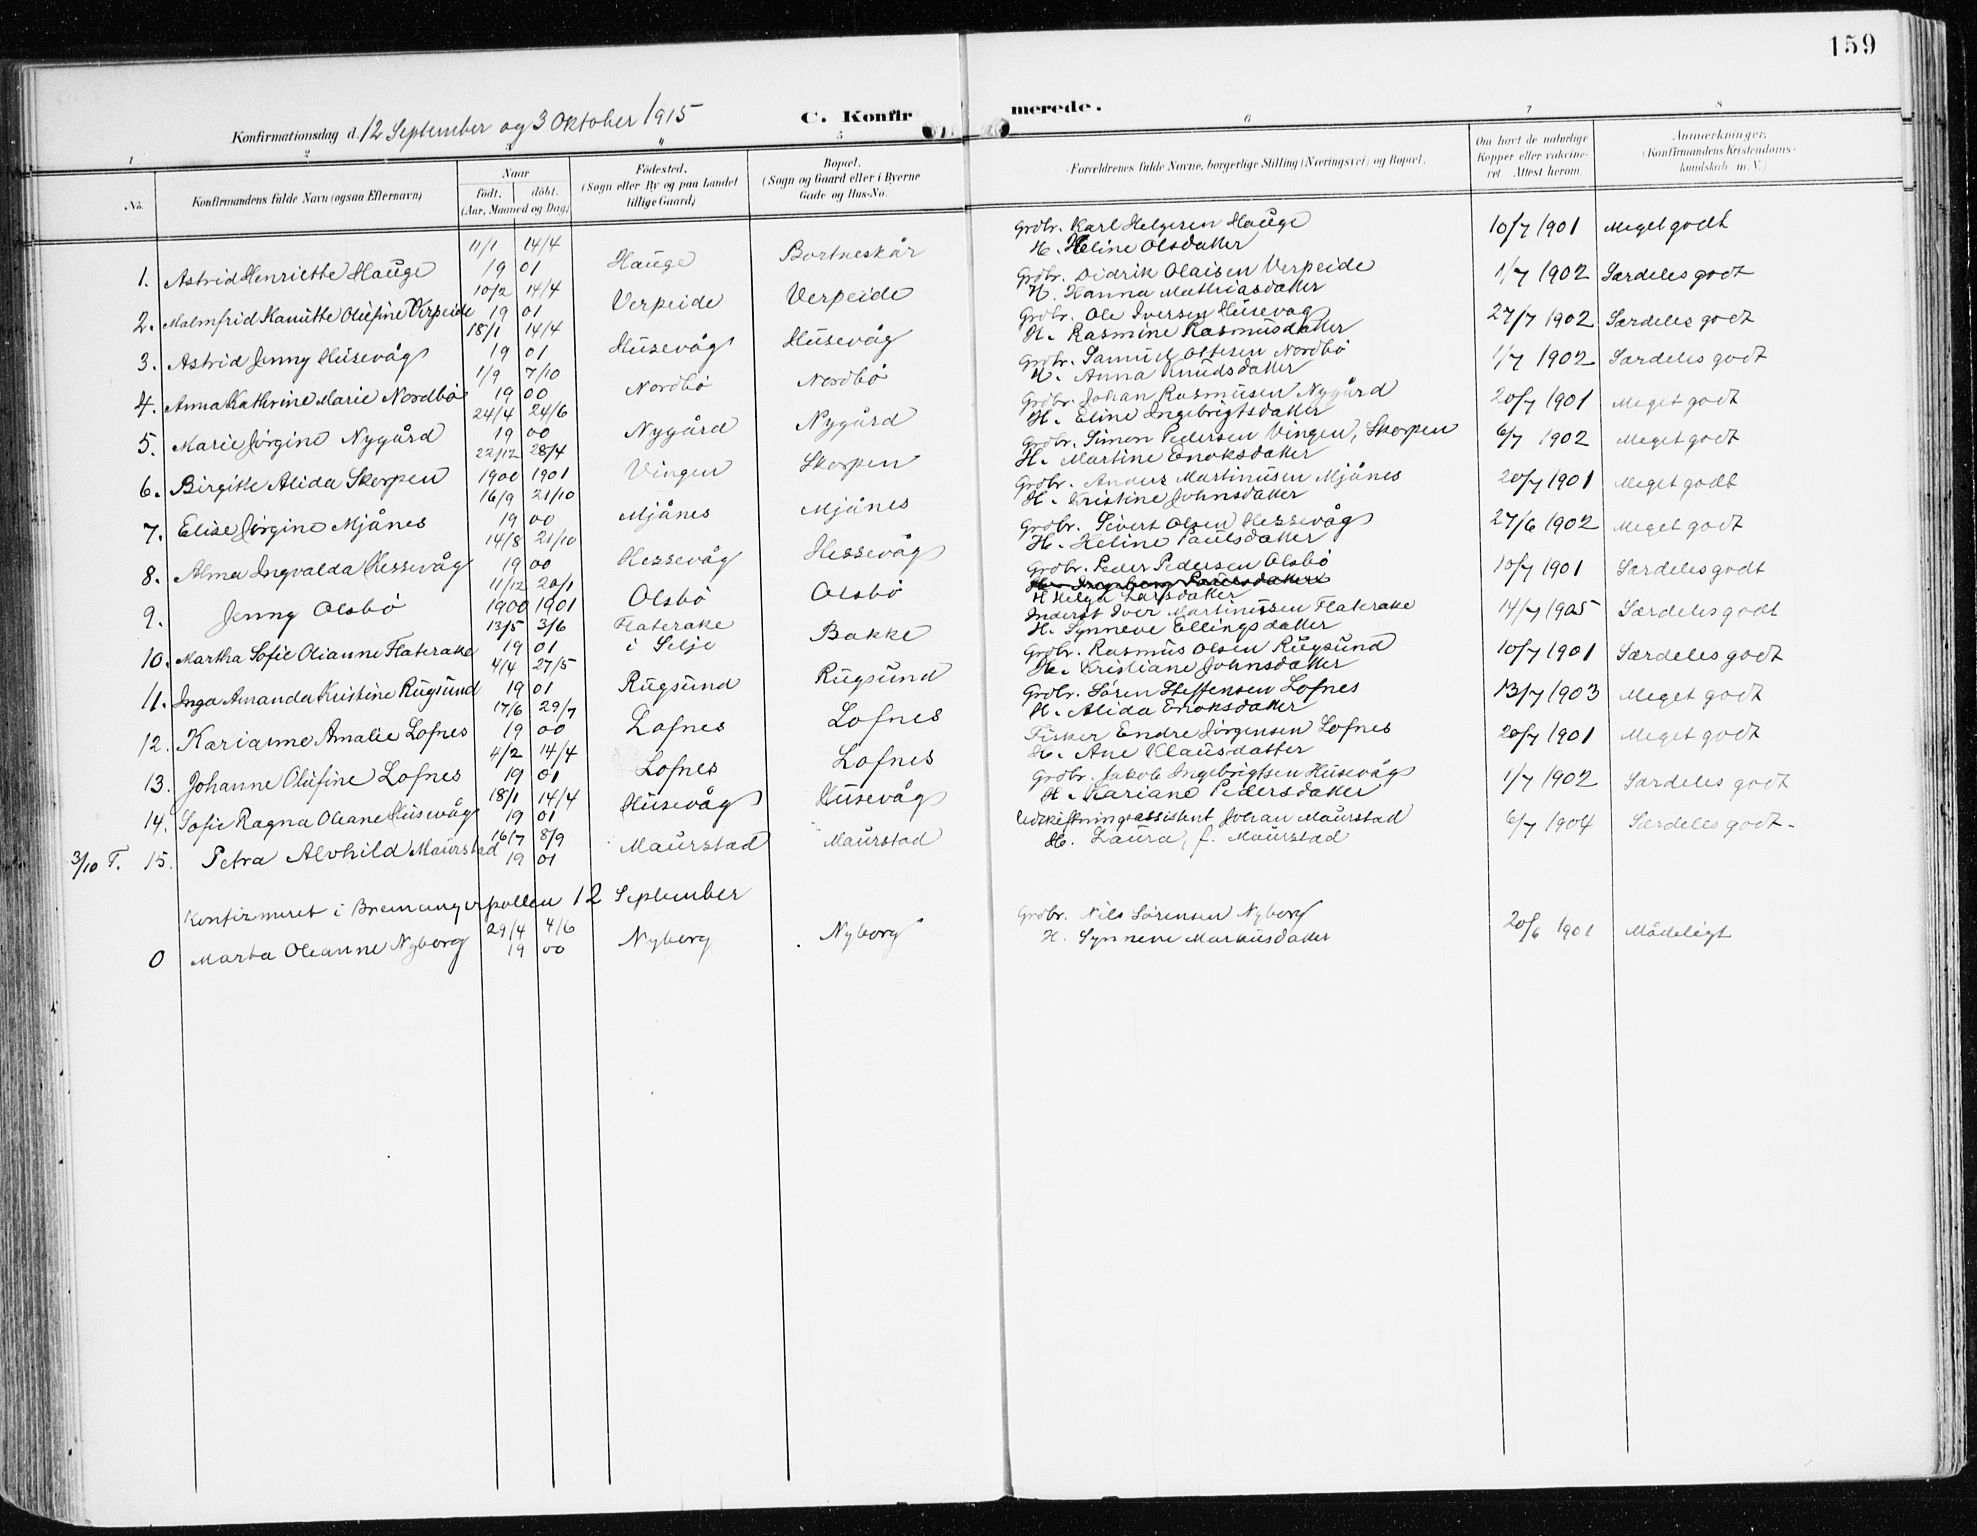 159
C. Konfirmerede.
Konfirmationsdag d. 12 September og 3 Oktober 1915
1 2 3 4 5 6 7 8
No. Konfirmandens fulde Navn (ogsaa Efternavn) Naar født, døbt. (Aar, Maaned og Dag) Fødested. (Sogn eller By og paa Landet tillige Gaard) Bopæl. (Sogn og Gaard eller i Byerne Gade og Hus-No. Forældrenes fulde Navne, borgerlige Stilling (Næringsvei) og Bopæl. Om havt de naturlige Kopper eller vakcineret Attest herom Anmærkninger. (Konfirmandens Kristendomskundskab m. V.)
1. Astrid Henriette Hauge 11/1 14/4 19 01 Hauge Bortneskår Grdbr. Karl Helgesen Hauge H. Heline Olsdatter 10/7 1901 Meget godt
2. Malmfrid Hanutte Olufine Verpeide 10/2 14/4 19 01 Verpeide Verpeide Grdbr. Didrik Olaisen Verpeide H. Hanna Mathiasdatter 1/7 1902 Særdeles godt
3. Astrid Jenny Husevåg 18/1 14/4 19 01 Husevåg Husevåg Grdbr. Ole Iversen Husevåg H. Rasmine Rasmusdatter 27/7 1902 Særdeles godt
4. Anna Kathrine Marie Nordbø 1/9 7/10 19 00 Nordbø Nordbø Grdbr. Samuel Ottesen Nordbø H. Anna Knudsdatter 1/7 1902 Særdeles godt
5. Marie Jørgine Nygård 24/4 24/6 19 00 Nygård Nygård Grdbr. Johan Rasmusen Nygård H. Eline Ingebrigtsdatter 20/7 1901 Meget godt
6. Birgitte Alida Skorpen 22/12 28/4 1900 1901 Vingen Skorpen Grdbr. Simon Pedersen Vingen, Skorpen H. Martine Enoksdatter 6/7 1902 Meget godt
7. Elise Jørgine Mjånes 16/9 21/10 19 00 Mjånes Mjånes Grdbr. Anders Martinusen Mjånes H. Kristine Johnsdatter 20/7 1901 Meget godt
8. Alma Ingvalda Hessevåg 14/8 21/10 19 00 Hessevåg Hessevåg Grdbr. Sivert Olsen Hessevåg H. Heline Paulsdatter 27/6 1902 Meget godt
9. Jenny Olsbø 11/12 20/1 1900 1901 Olsbø Olsbø Grdbr. Peder Pedersen Olsbø H Helga Larsdatter 10/7 1901 Særdeles godt
10. Martha Sofie Olianne Flaterake 13/5 3/6 19 01 Flaterake i Selje Bakke Inderst Iver Martinussen Flaterake H. Synneve Ellingsdatter 14/7 1905 Særdeles godt
11. Inga Amanda Kristine Rugsund 4/4 27/5 19 01 Rugsund Rugsund Grdbr. Rasmus Olsen Rugsund H. Kristiane Johnsdatter 10/7 1901 Særdeles godt
12. Karianne Amalie Lofnes 17/6 29/7 19 00 Lofnes Lofnes Grdbr. Søren Steffensen Lofnes H. Alida Enoksdatter 13/7 1903 Meget godt
13. Johanne Olufine Lofnes 4/2 14/4 19 01 Lofnes Lofnes Fisker Endre Jørgensen Lofnes H. Ane Klausdatter 20/7 1901 Meget godt
14. Sofie Ragna Oleane Husevåg 18/1 14/4 19 01 Husevåg Husevåg Grdbr. Jakob Ingebrigtsen Husevåg H. Kariane Pedersdatter 1/7 1902 Særdeles godt
3/10 T. 15. Petra Alvhild Maurstad 16/7 8/9 19 01 Maurstad Maurstad Udskiftningsassistent Johan Maurstad H. Laura, f. Maurstad 6/7 1904 Særdeles godt
Konfirmeret i Bremangerpollen 12 September
0 Marta Oleanne Nyborg 29/4 4/6 19 00 Nyborg Nyborg Grdbr. Nils Sørensen Nyborg H. Synneve Markusdatter 20/6 1901 Mådeligt